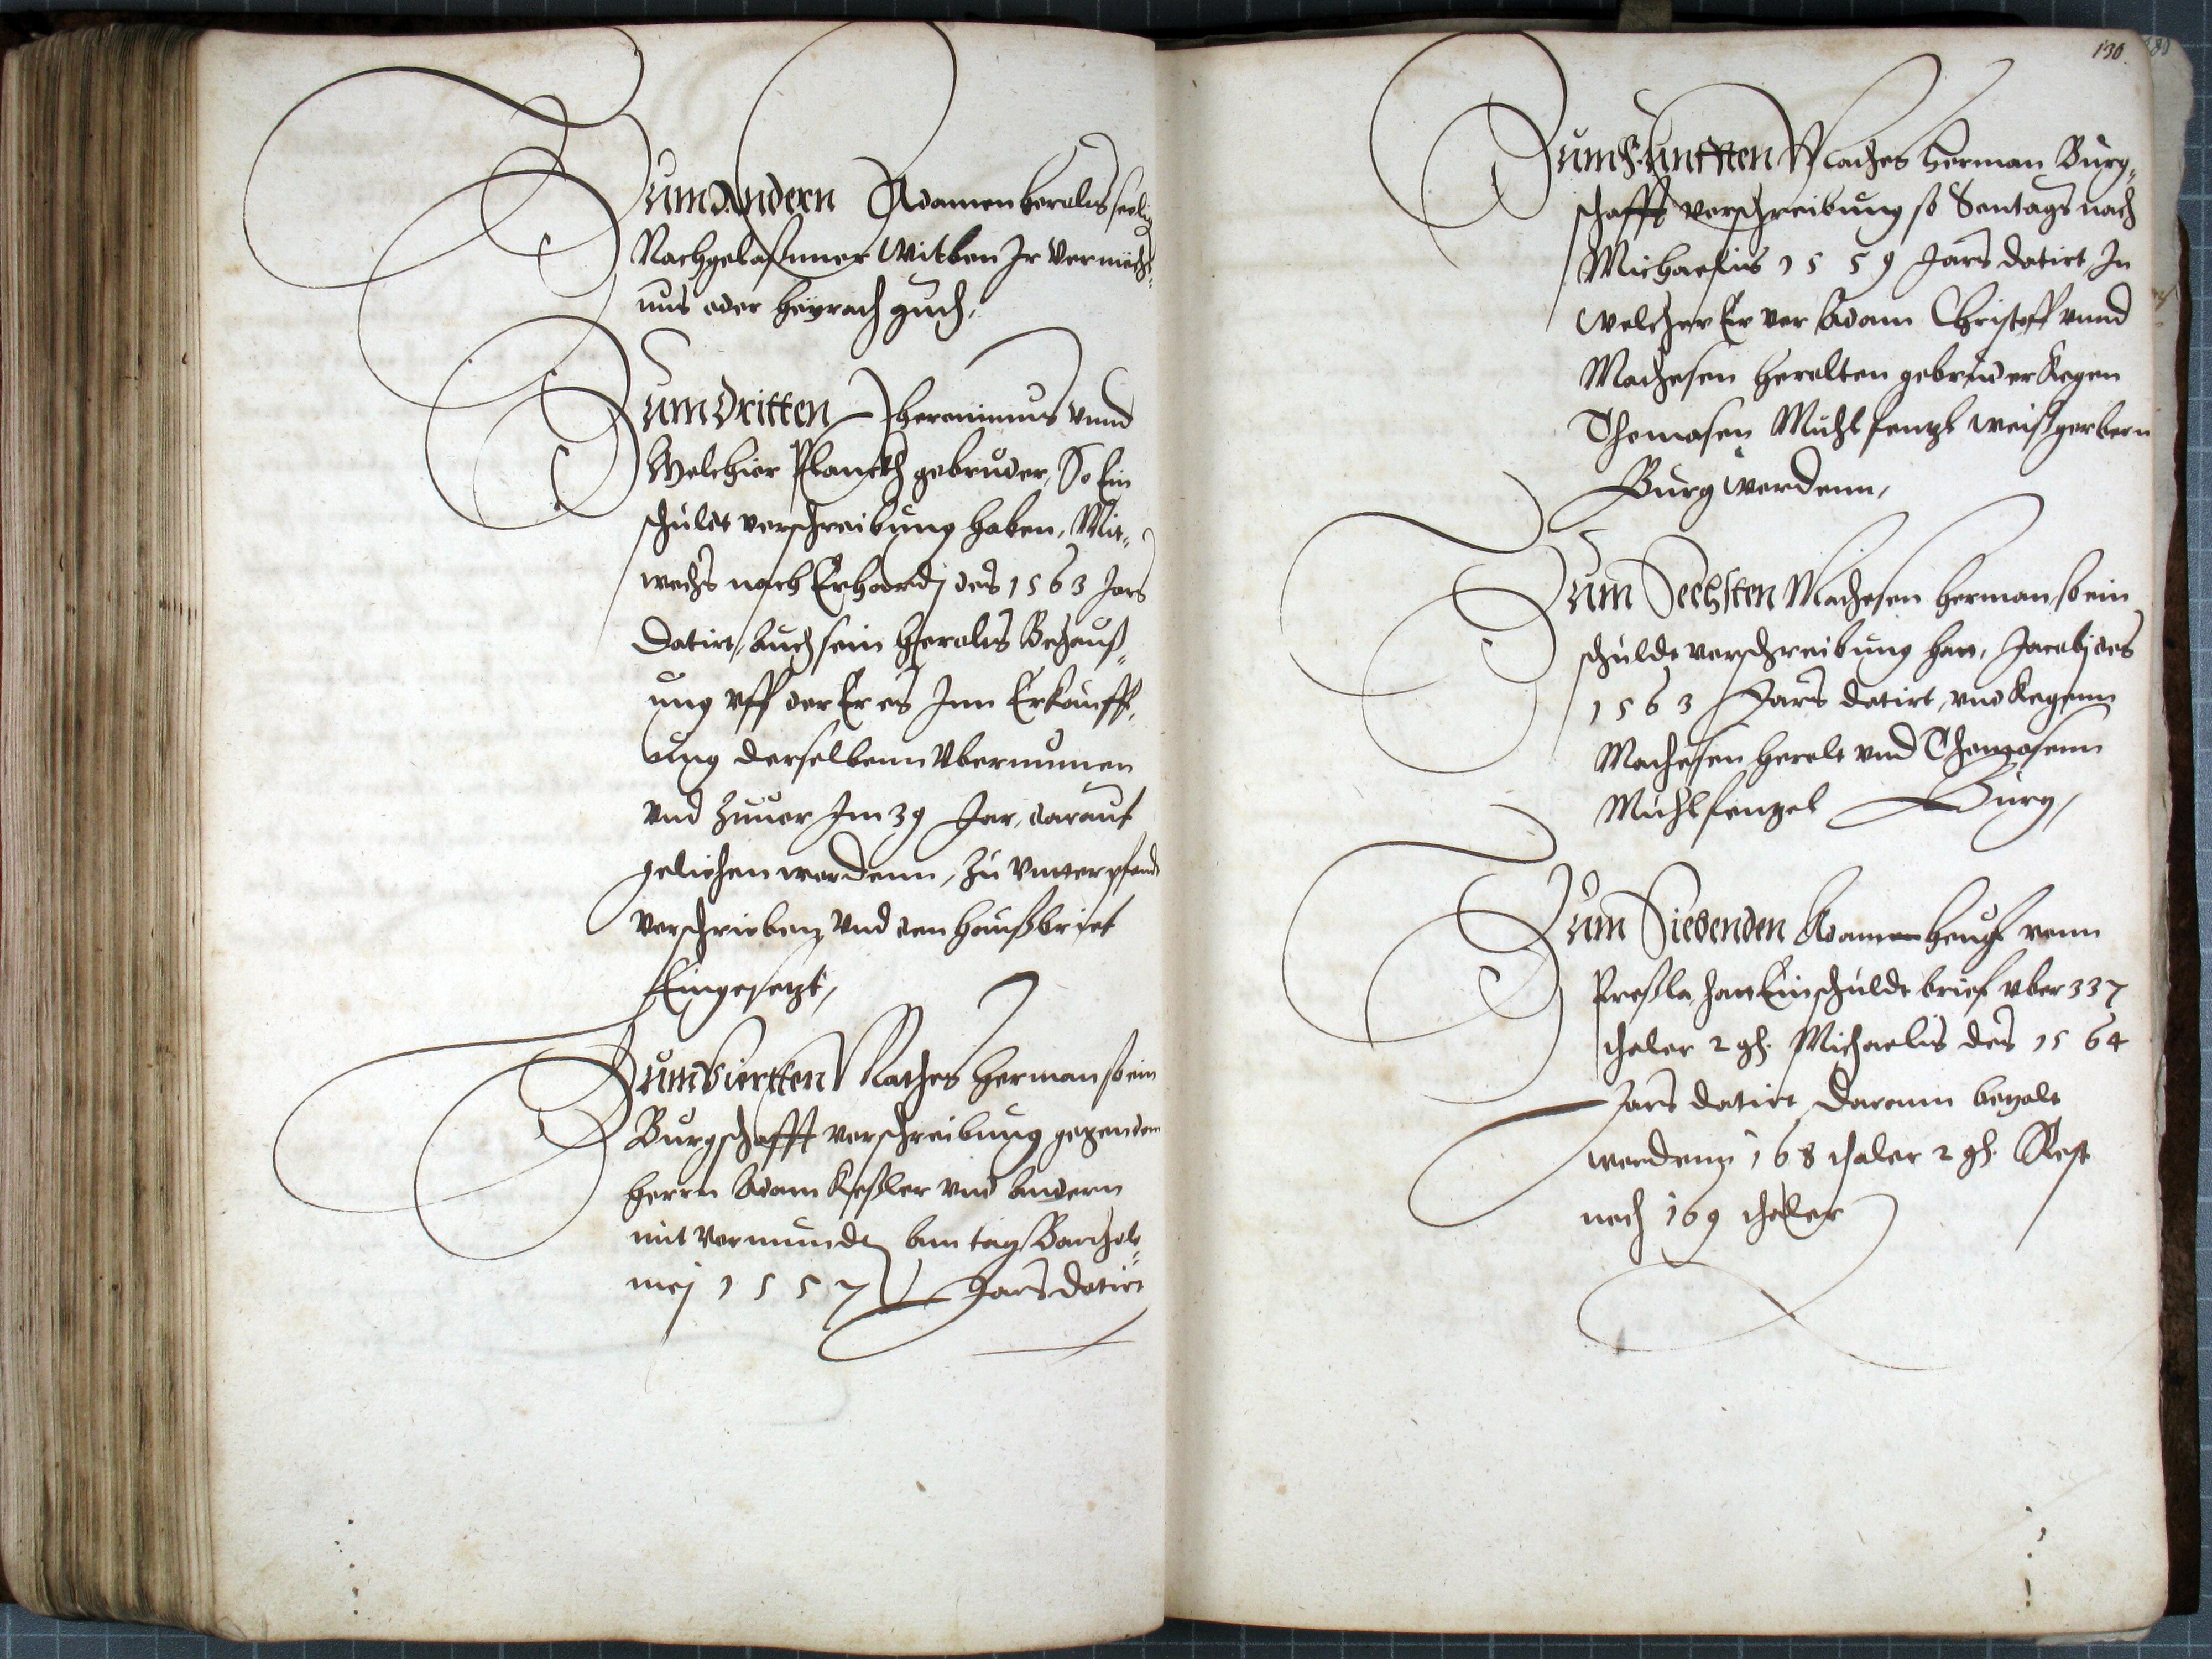 Zum Andern Adamen Herolts seelig
Nachgelaßnner Witben Jr Vermecht¬
nus oder heyrath guth,
Zum Dritten Iheronimus vnnd
Melchior Planckh gebruder, So Ein
schuldt verschreibung haben, Mit¬
wochs nach Erhardj des 1563 Jars
Datirt, Auch sein Herolts Behauß¬
ung vff der Er es Inn Erkauff¬
ung derselbenn Vbernumen
vnd Zuuor Im 39 Jar, darauf
gelichen wordenn, Zu Vnterpfandt
verschriebenn Vnd den Haußbrief
Eingesetzt,
Zum Viertten Mathes Herman so ein
Burgschafft verschreibung gegen dem
Herrn Adam Keßler vnd Andern
mit Vormunden Am tag Barthol¬
mej 1557 Jars datirt
130.
Zum Funfften Mathes Herman Burg¬
schafft verschreibung so Sontags nach
Michaelis 1559 Jars datirt In
welcher Er vor Adam Christoff vnnd
Mathesen Herolten gebruder Kegen
Thomasen Muhlfenzl weißgerbern
Burg wordenn,
Zum Sechsten Mathesen Herman so ein
schuldt verschreibung hat, Jacobj des
1563 Jars datirt, vnd Kegenn
Mathesen Herolt vnd Thomasenn
Muhlfenzel Burg,
Zum Siebenden Adamen Heugl vonn
Preßla, hat Ein schuldt brief vber 337
thaler 2 gh. Michaelis des 1564
Jars datirt Daronn bezalt
wordenn 168 thaler 2 gh. Rest
noch 169 thaler